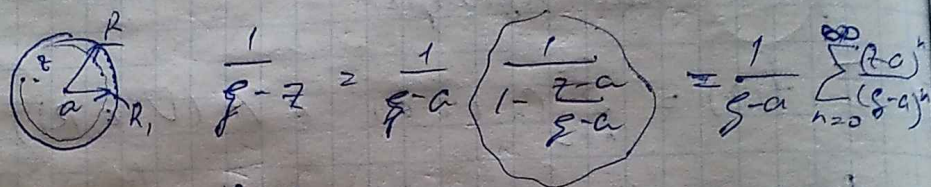 R z a R₁ 1/(ξ-z) = 1/(ξ-a) (1/(1 - (z-a)/(ξ-a))) = 1/(ξ-a) ∑_{n=0}^{∞} (z-a)ⁿ/(ξ-a)ⁿ